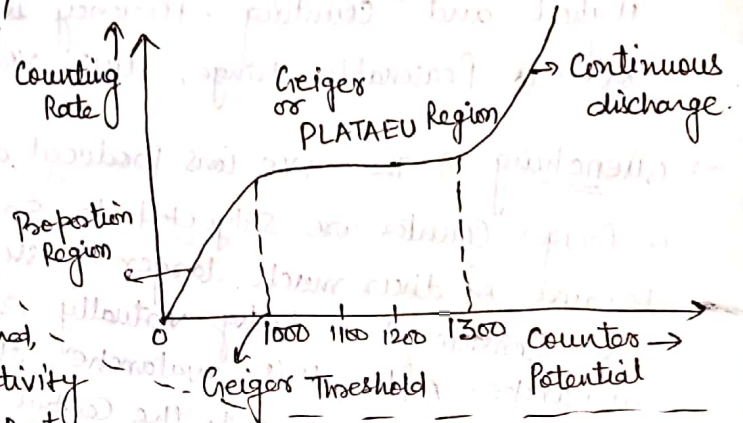 Counting
Rate
Geiger
or
PLATAEU Region
Continuous
discharge.
Proportion
Region
0 1000 1100 1200 1300
Counter
Potential
Geiger Threshold
tivity